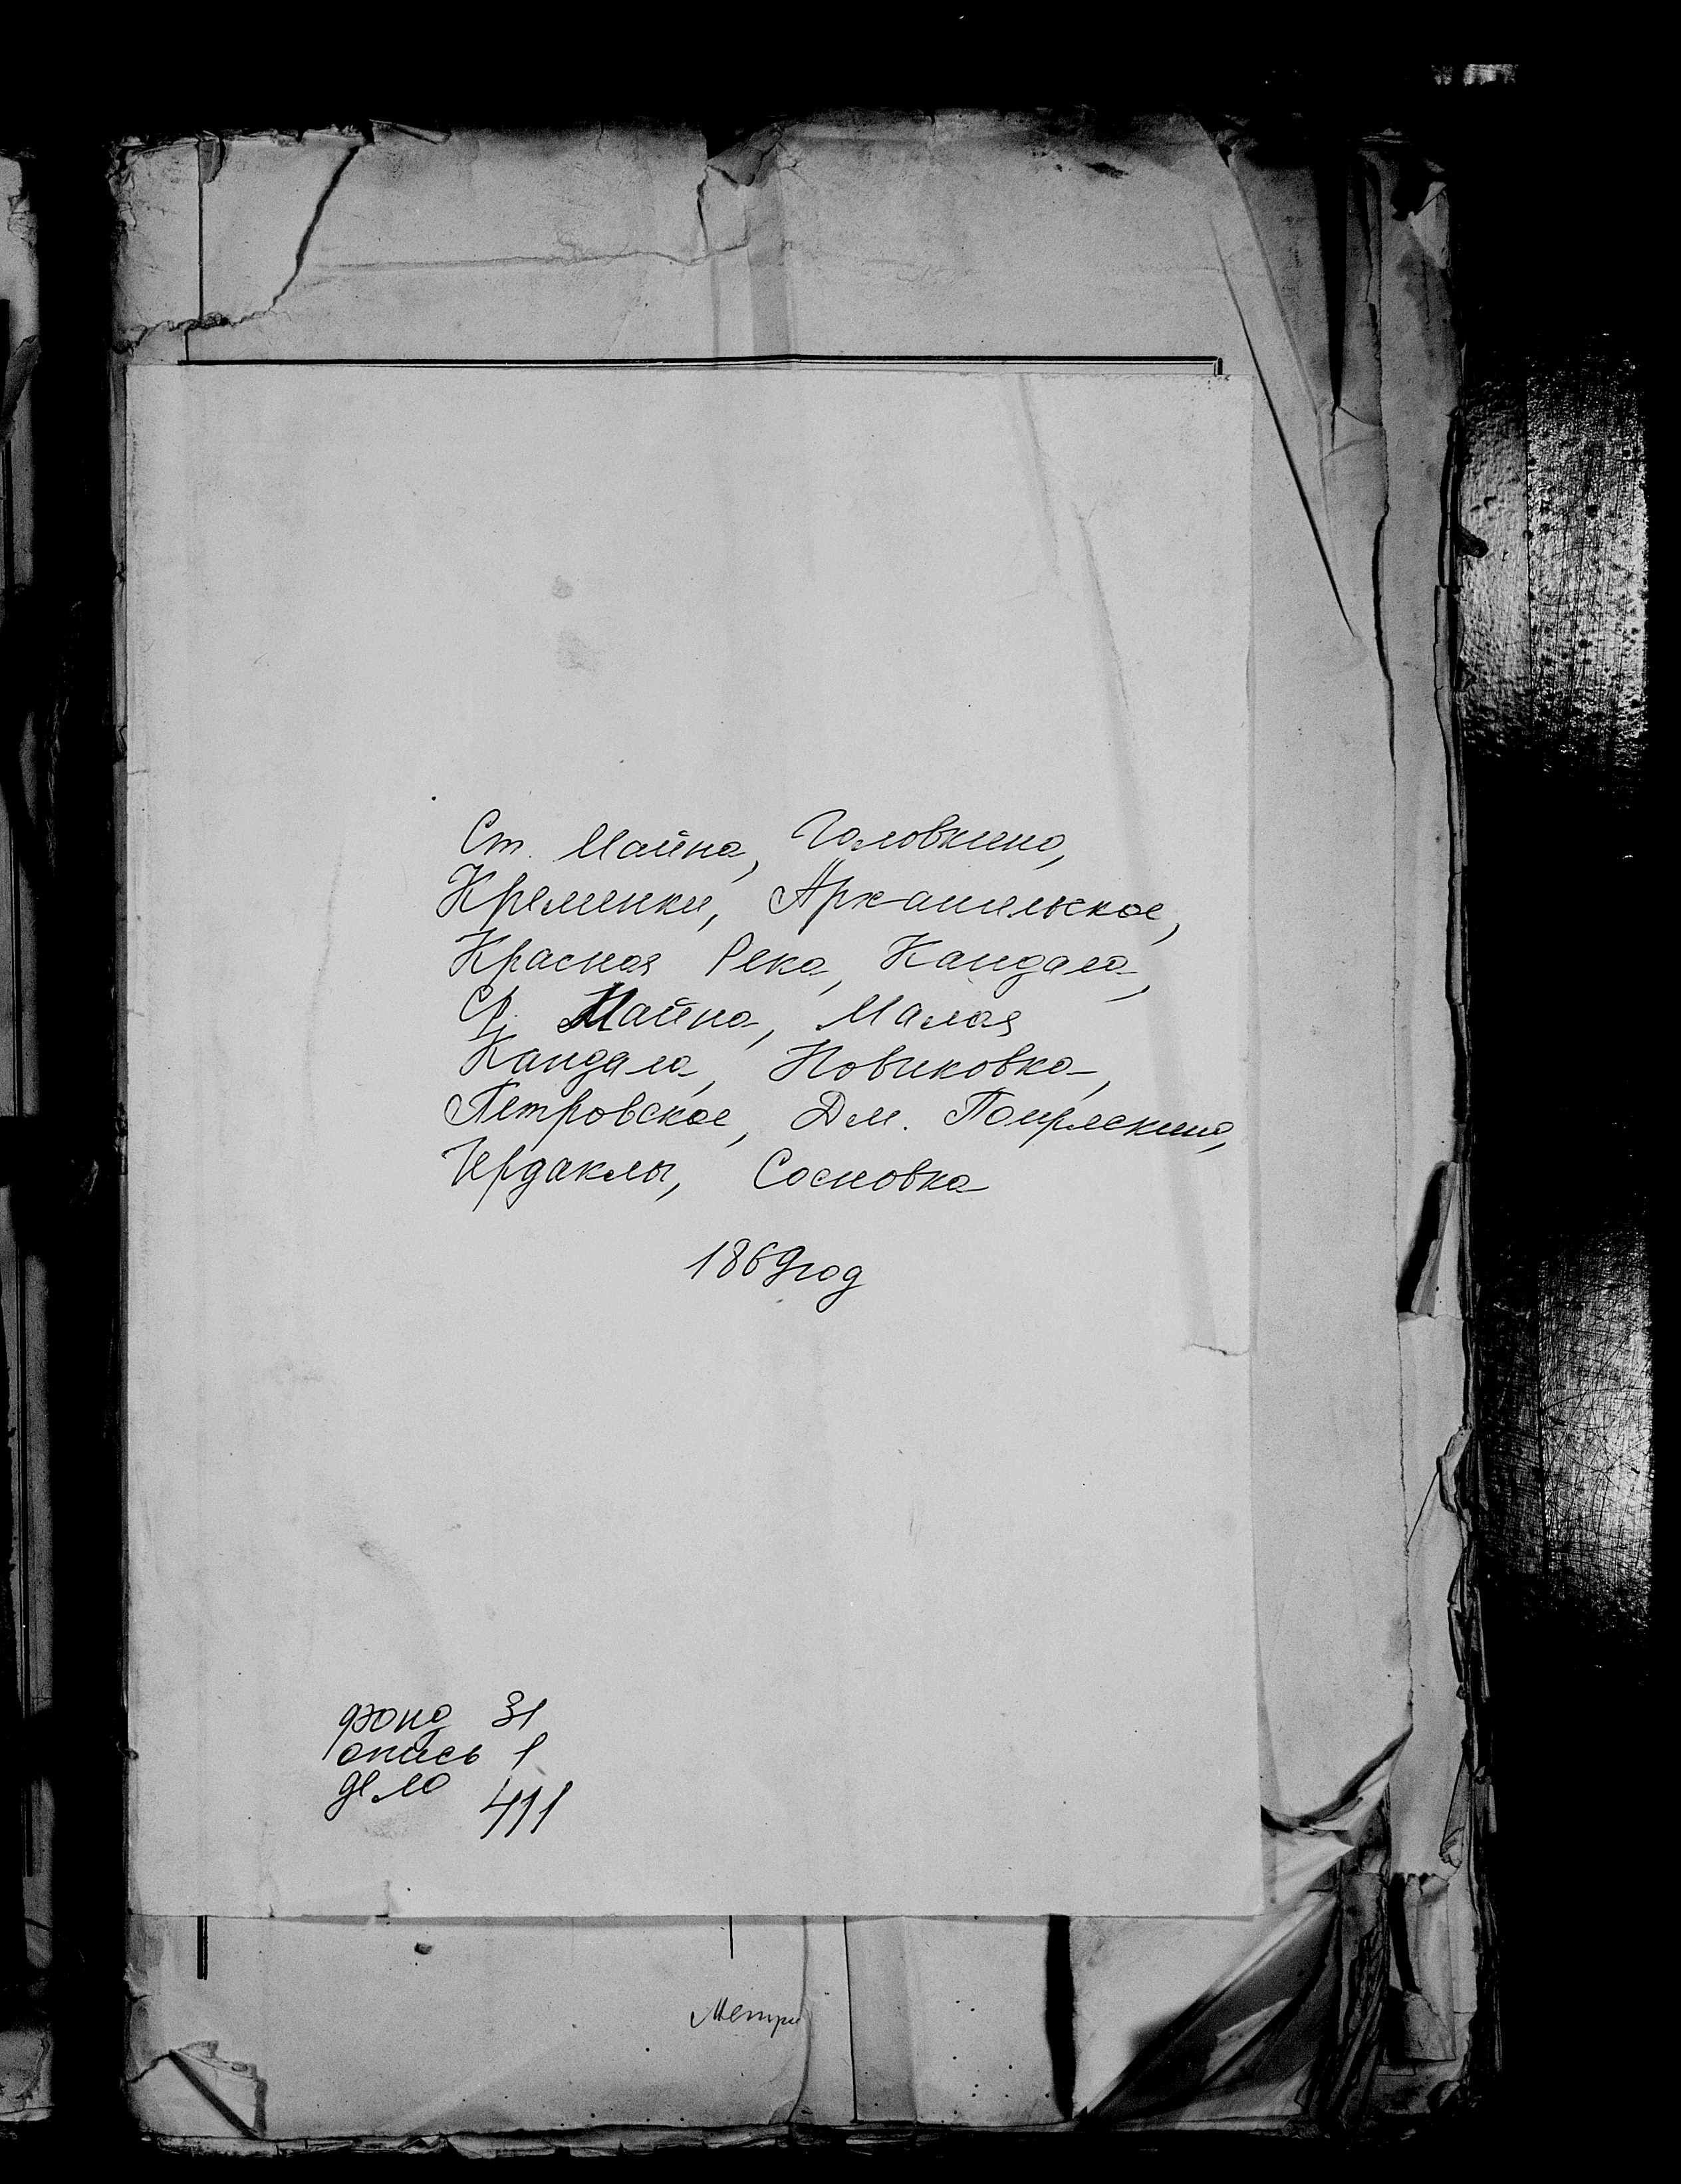 Ст. Майна, Головкино,
Кременки, Архангельское,
Красная Река, Кандала,
Ср. Майна, Малая
Кандала, Новиковка,
Петровское, Дм. Помряскино,
Чердаклы, Сосновка
1869 год
фонд 31
опись 1
дело 411
Метри